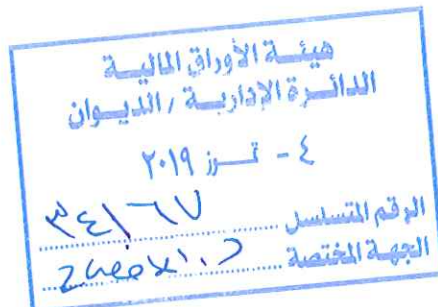 هيئة الأوراق المالية
الدائرة الإدارية / الديوان
٤ - تموز ٢٠١٩
الرقم المتسلسل ٣٤١٦٧
الجهة المختصة